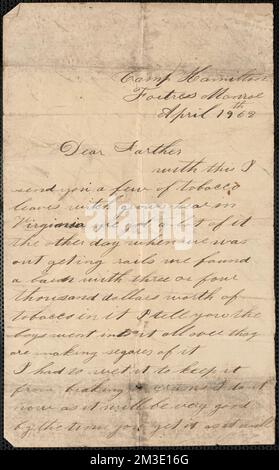 Camp Hamilton
Fortress Monroe
April 19th 62
Dear Farther
with this I
send you a few of tobacco
leaves witch grows hear in
Virginia we got a lot of it
the other day when we was
out geting rails we found
a barn with three or four
thousand dollars worth of
tobacco in it I tell you the
boys went into it all over they
are making segares of it
I had to wet it to keep it
from braking
now as it will be very good
by the time you get it as it
alamy
Image ID: 2M3E16G
www.alamy.com